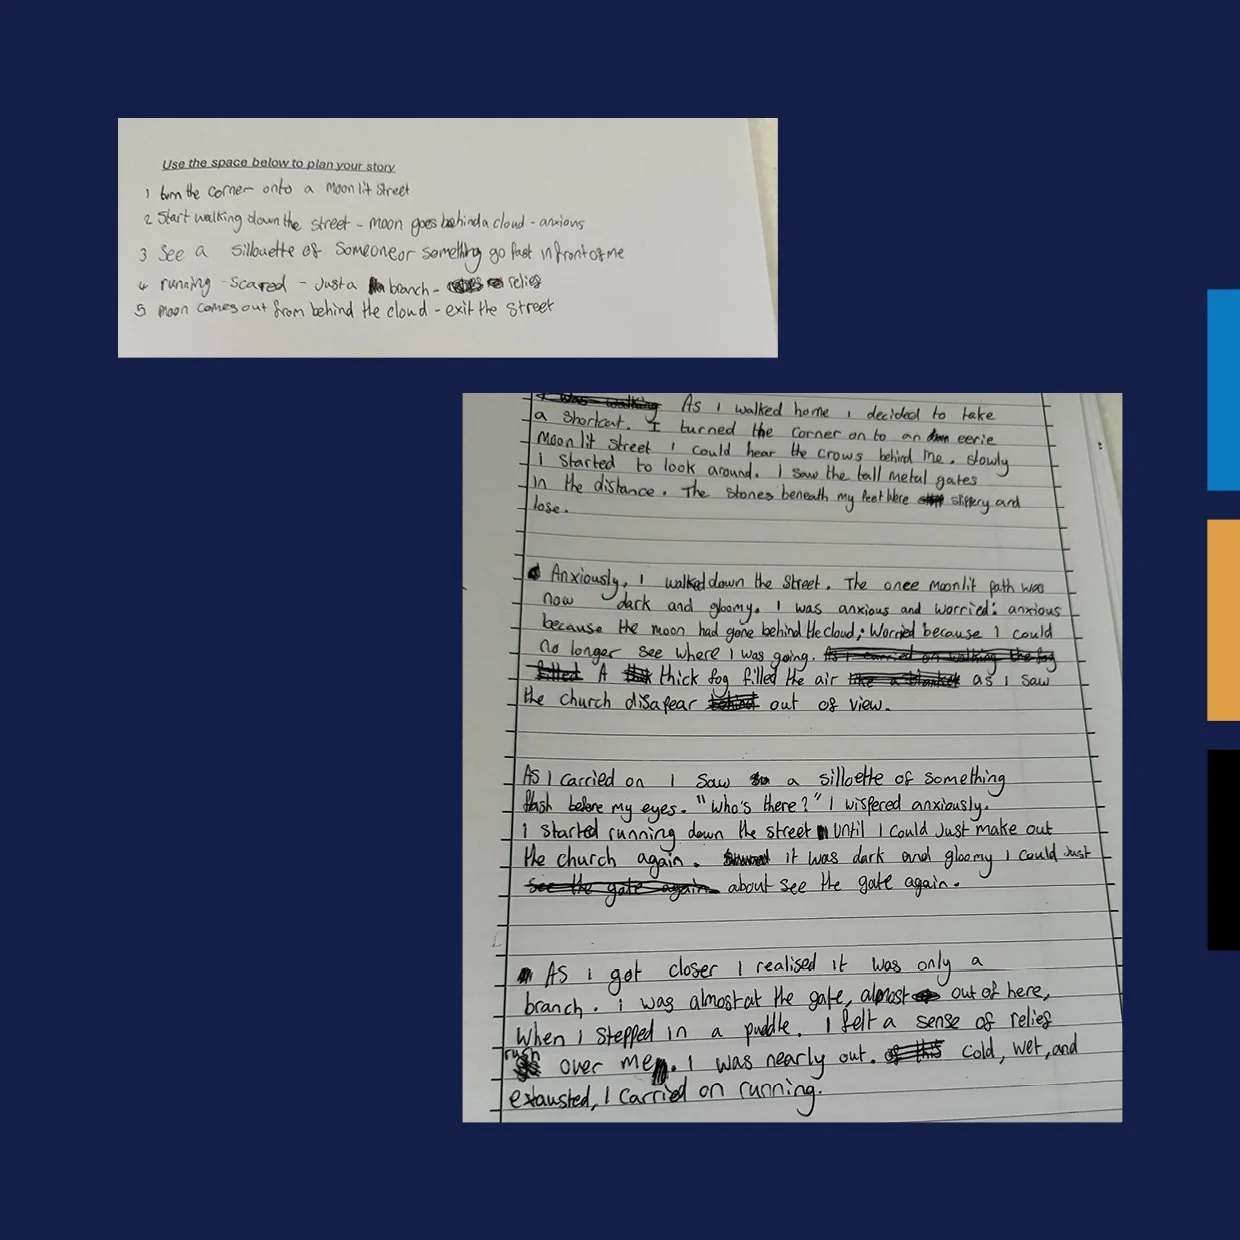 Use the space below to plan your story
1 turn the corner onto a Moonlit Street
2 Start walking down the street - moon goes behind a cloud - anxious
3 See a sillouette of Someone or something go fast in front of me
4 running - scared - Just a branch - relief
5 moon comes out from behind the cloud - exit the Street
I was walking As I walked home I decided to take
a shortcut. I turned the corner on to an eerie
Moonlit street I could hear the crows behind me. slowly
I started to look around. I saw the tall metal gates
in the distance. The stones beneath my feet were slippery and
lose.
Anxiously, I walked down the street. The once moonlit path was
now dark and gloomy. I was anxious and worried: anxious
because the moon had gone behind the cloud; Worried because I could
no longer see where I was going. As I carried on walking the fog
filled A thick fog filled the air like a blanket as I saw
the church disapear behind out of view.
As I carried on I saw a silloette of something
flash before my eyes. "Who's there?" I wispered anxiously.
I started running down the street until I could Just make out
the church again. it was dark and gloomy I could Just
see the gate again about see the gate again.
As I got closer I realised it was only a
branch. I was almost at the gate, almost out of here,
When I stepped in a puddle. I felt a sense of relief
rush over me. I was nearly out. of this cold, wet, and
exausted, I carried on running.